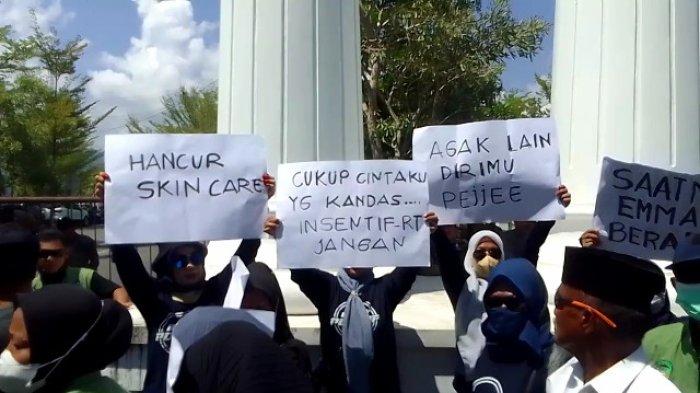 HANCUR
SKIN CARE
CUKUP CINTAKU
YG KANDAS....
INSENTIF-RT
JANGAN
AGAK LAIN
DIRIMU
PEJJEE
SAAT
EMMA
BERA